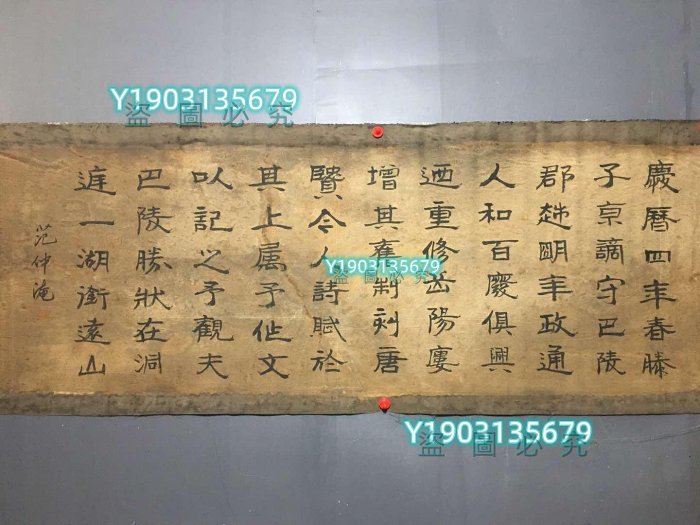 Y1903135679
盜圖必究
慶曆四年春滕
子京謫守巴陵
郡越明年政通
人和百廢俱興
迺重修岳陽廔
增其舊制刻唐
賢今人詩賦於
其上属予作文
以記之予觀夫
巴陵勝狀在洞
庭一湖銜遠山
范仲淹
Y1903135679
盜圖必究
Y1903135679
盜圖必究